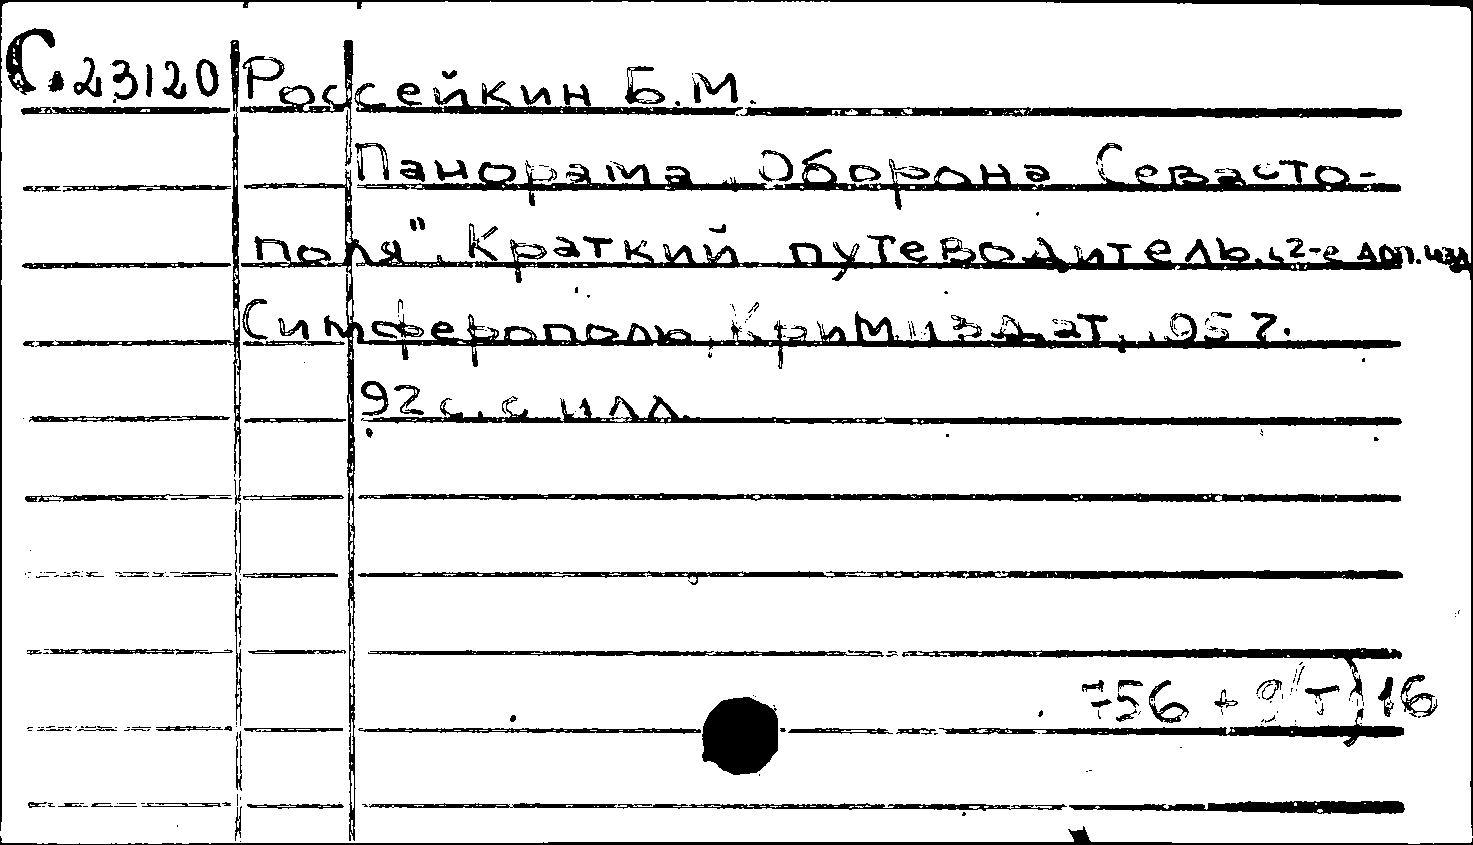 С.23120 Россейкин Б.М.
Панорама „Оборона Севасто-
поля". Краткий путеводитель. 2-е доп. изд
Симферополь, Крымиздат, 1957.
92 с. с илл.
756 + 9(Т)16